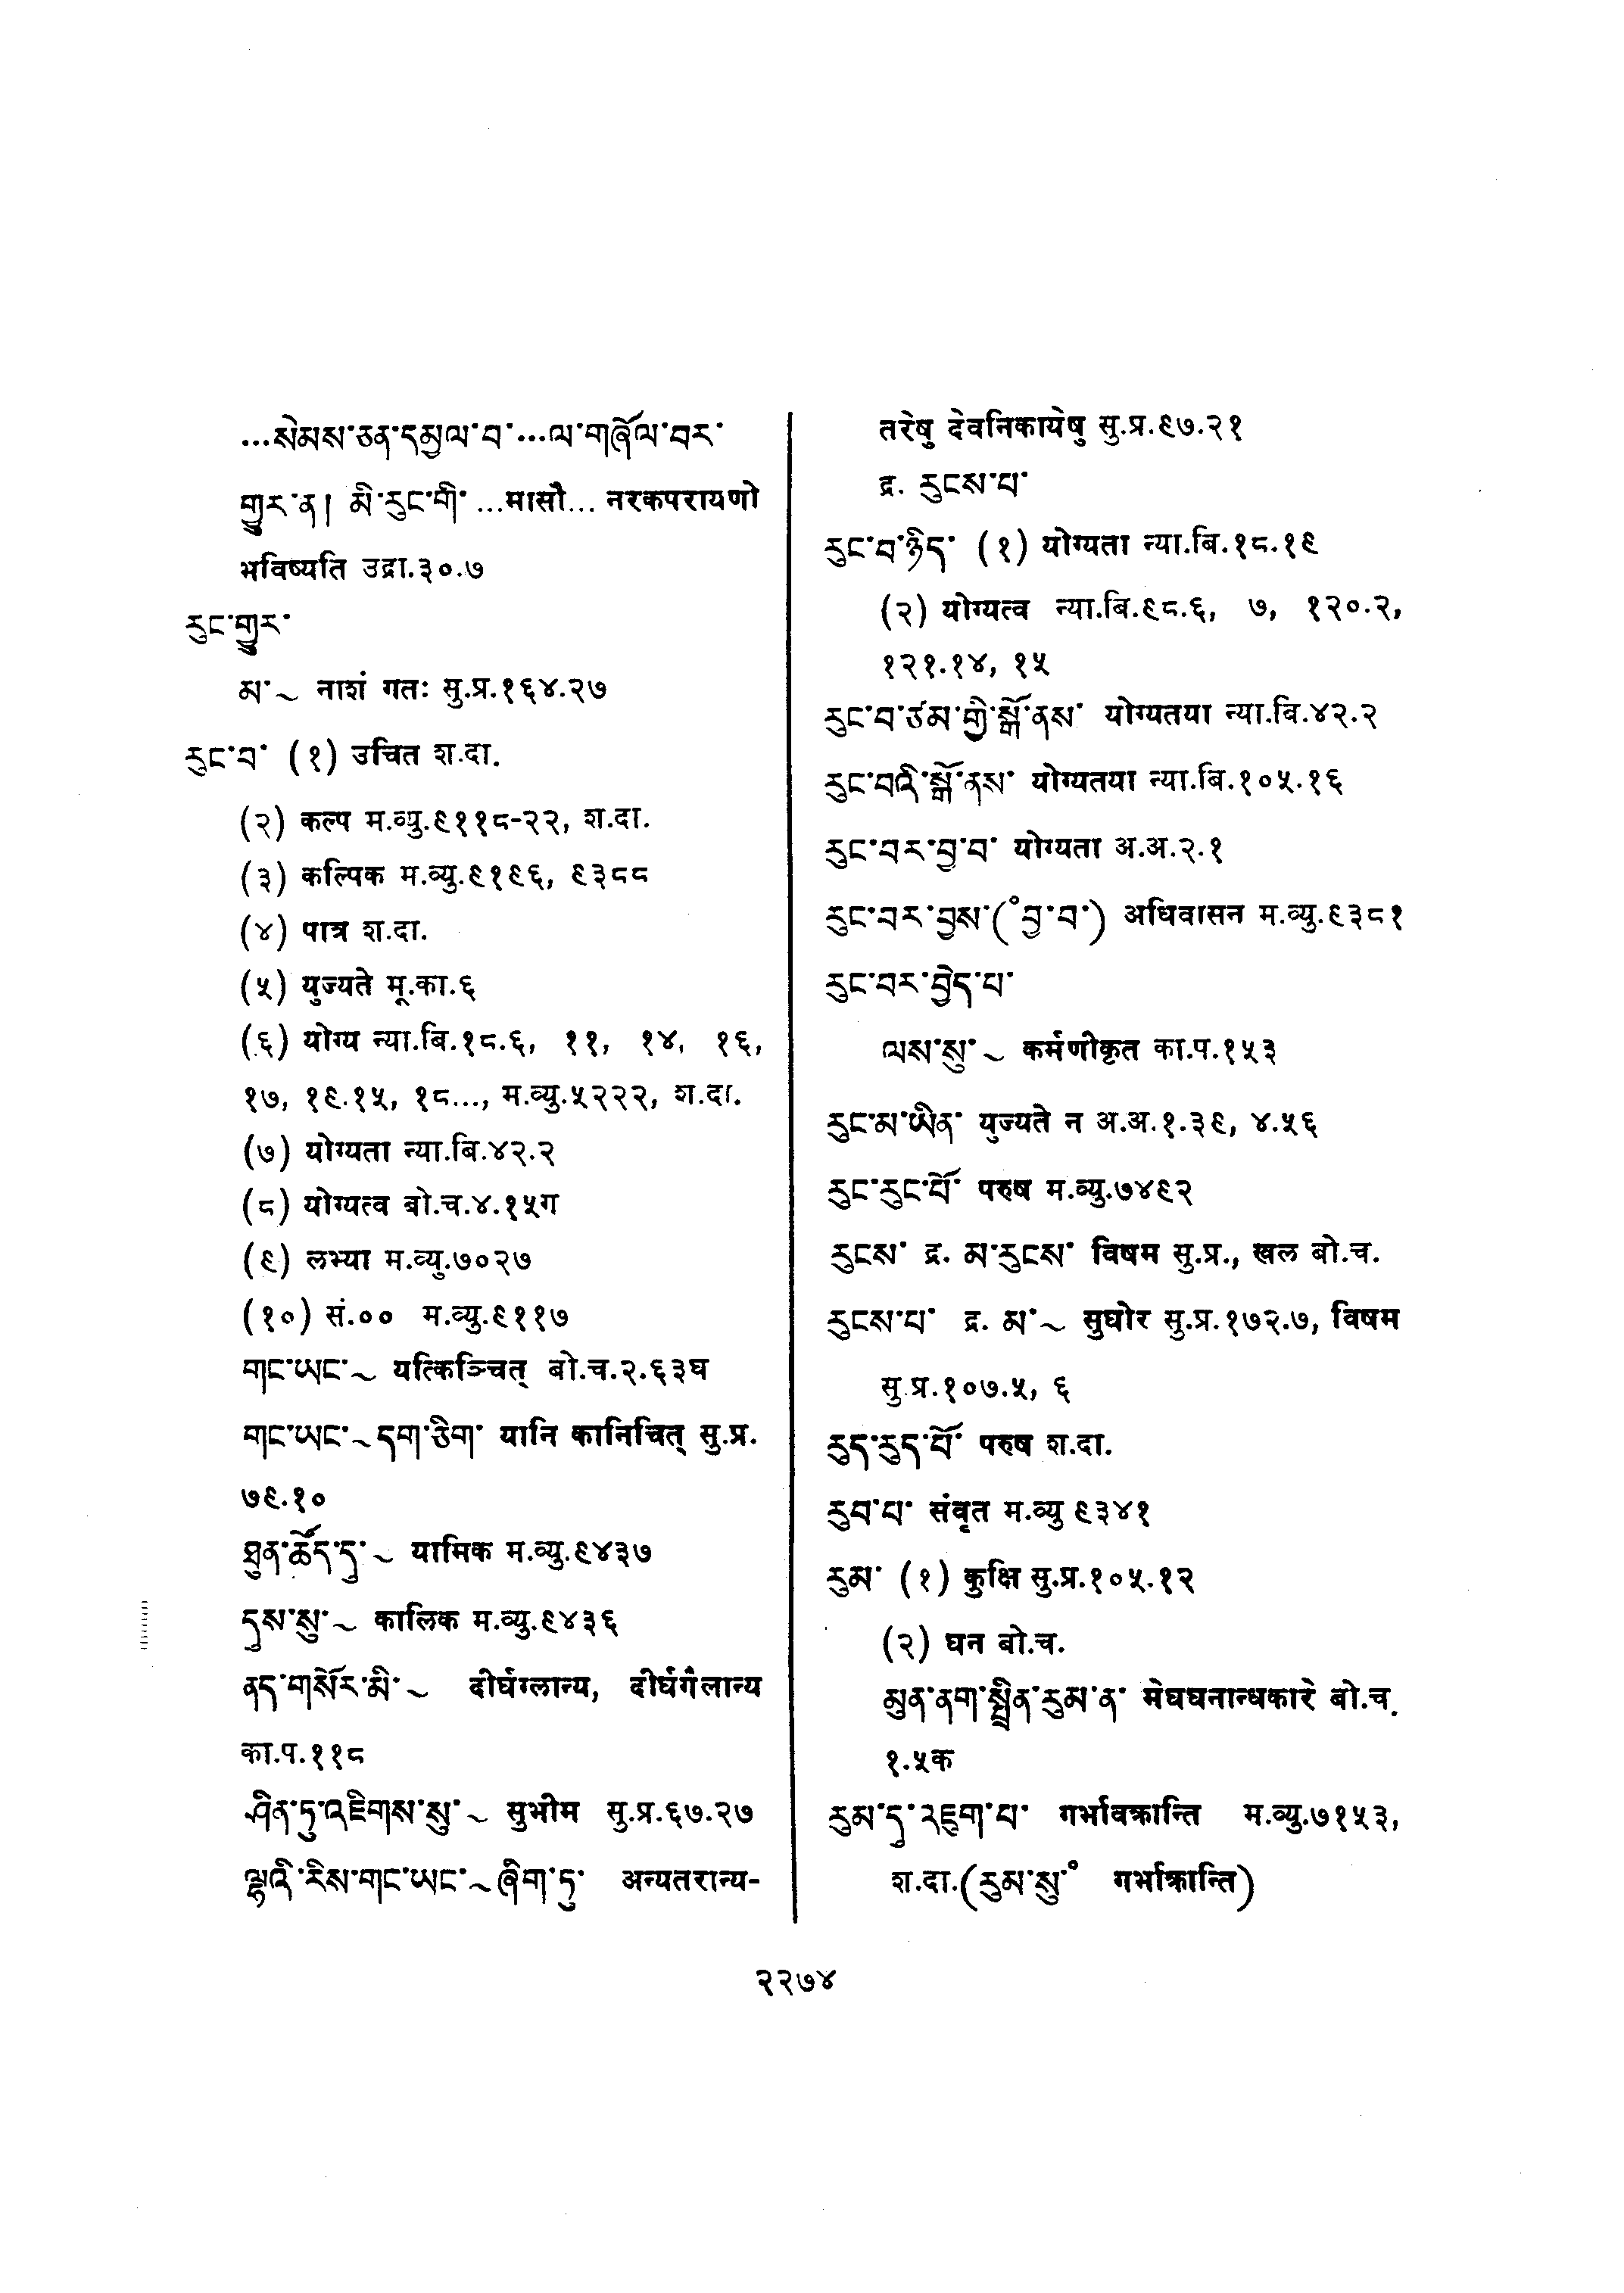 ...སེམས་ཅན་དམྱལ་བ་...ལ་གཞོལ་བར་
གྱུར་ན། མི་རུང་གི་ ...मासौ... नरकपरायणो
भविष्यति उद्रा.३०.७
རུང་གྱུར་
མ་~ नाशं गतः सु.प्र.१६४.२७
རུང་བ་ (१) उचित श.दा.
(२) कल्प म.व्यु.९११८-२२, श.दा.
(३) कल्पिक म.व्यु.९१९६, ९३८८
(४) पात्र श.दा.
(५) युज्यते मू.का.६
(६) योग्य न्या.बि.१८.६, ११, १४, १६,
१७, १९.१५, १८..., म.व्यु.५२२२, श.दा.
(७) योग्यता न्या.बि.४२.२
(८) योग्यत्व बो.च.४.१५ग
(९) लभ्या म.व्यु.७०२७
(१०) सं.०० म.व्यु.९११७
གང་ཡང་~ यत्किञ्चित् बो.च.२.६३घ
གང་ཡང་~དག་ཅིག་ यानि कानिचित् सु.प्र.
७९.१०
ཐུན་ཚོད་དུ་~ यामिक म.व्यु.९४३७
དུས་སུ་~ कालिक म.व्यु.९४३६
ནད་གསོར་མི་~ दीर्घग्लान्य, दीर्घगैलान्य
का.प.११८
ཤིན་ཏུ་འཇིགས་སུ་~ सुभीम सु.प्र.६७.२७
ལྷའི་རིས་གང་ཡང་~ཞིག་ཏུ་ अन्यतरान्य-
तरेषु देवनिकायेषु सु.प्र.९७.२१
द्र. རུངས་པ་
རུང་བ་ཉིད་ (१) योग्यता न्या.बि.१८.१९
(२) योग्यत्व न्या.बि.९८.६, ७, १२०.२,
१२१.१४, १५
རུང་བ་ཙམ་གྱི་སྒོ་ནས་ योग्यतया न्या.बि.४२.२
རུང་བའི་སྒོ་ནས་ योग्यतया न्या.बि.१०५.१६
རུང་བར་བྱ་བ་ योग्यता अ.अ.२.१
རུང་བར་བྱས་(°བྱ་བ་) अधिवासन म.व्यु.९३८१
རུང་བར་བྱེད་པ་
ལས་སུ་~ कर्मणीकृत का.प.१५३
རུང་མ་ཡིན་ युज्यते न अ.अ.१.३९, ४.५६
རུང་རུང་པོ་ परुष म.व्यु.७४९२
རུངས་ द्र. མ་རུངས་ विषम सु.प्र., खल बो.च.
རུངས་པ་ द्र. མ་~ सुघोर सु.प्र.१७२.७, विषम
सु.प्र.१०७.५, ६
རུད་རུད་པོ་ परुष श.दा.
རུབ་པ་ संवृत म.व्यु ९३४१
རུམ་ (१) कुक्षि सु.प्र.१०५.१२
(२) घन बो.च.
མུན་ནག་སྤྲིན་རུམ་ན་ मेघघनान्धकारे बो.च.
१.५क
རུམ་དུ་འཇུག་པ་ गर्भावक्रान्ति म.व्यु.७१५३,
श.दा.(རུམ་སུ་° गर्भाक्रान्ति)
२२७४